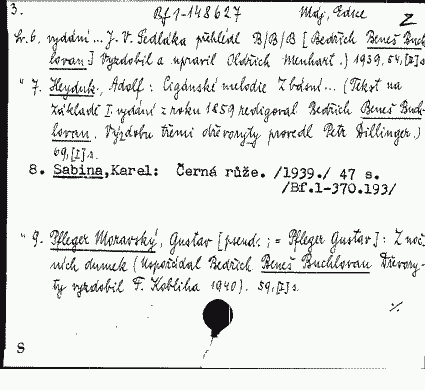 3. Bf 1-148627 Máj, Edice Z
č. 6. vydání... J. V. Sedláka přihlédl B/B/B [Bedřich Beneš Buch-
lovan.] Vyzdobil a upravil Oldřich Menhart.) 1939, 54, [I] s.
" 7. Heyduk, Adolf: Cigánské melodie Z básní... (Tekst na
základě I. vydání z roku 1859 redigoval Bedřich Beneš Buch-
lovan. Výzdobu třemi dřevoryty provedl Petr Dillinger.)
69, [I] s.
8. Sabina, Karel: Černá růže. /1939./ 47 s.
/Bf.1-370.193/
" 9. Pfleger Moravský, Gustav [pseud.; = Pfleger Gustav]: Z noč-
ních dumek (Uspořádal Bedřich Beneš Buchlovan Dřevory-
ty vyzdobil F. Kobliha 1940). 59, [I] s.
./.
8